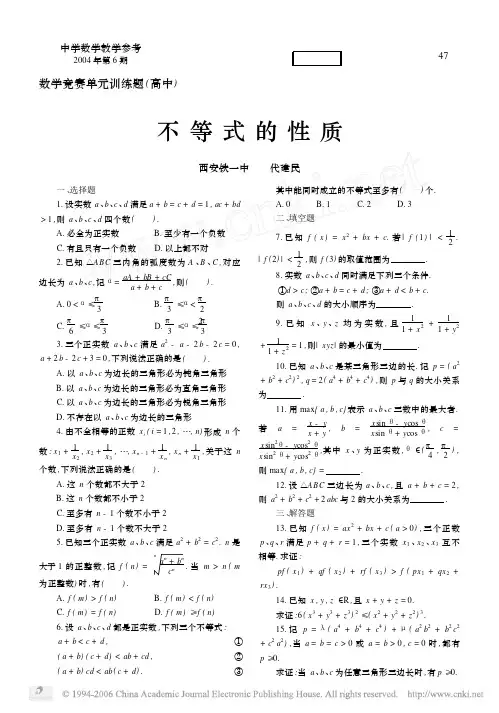 中学数学教学参考
2004 年第 6 期
47
数学竞赛单元训练题(高中)
不 等 式 的 性 质
西安铁一中 代建民
一、选择题
1. 设实数 a、b、c、d 满足 a + b = c + d = 1, ac + bd
> 1, 则 a、b、c、d 四个数( ).
A. 必全为正实数 B. 至少有一个负数
C. 有且只有一个负数 D. 以上都不对
2. 已知 △ABC 三内角的弧度数为 A、B、C, 对应
边长为 a、b、c, 记 α = (aA + bB + cC)/(a + b + c), 则( ).
A. 0 < α ≤ π/3 B. π/3 ≤ α < π/2
C. π/6 ≤ α ≤ π/3 D. π/3 ≤ α ≤ 2π/3
3. 三个正实数 a、b、c 满足 a² - a - 2b - 2c = 0,
a + 2b - 2c + 3 = 0, 下列说法正确的是( ).
A. 以 a、b、c 为边长的三角形必为钝角三角形
B. 以 a、b、c 为边长的三角形必为直角三角形
C. 以 a、b、c 为边长的三角形必为锐角三角形
D. 不存在以 a、b、c 为边长的三角形
4. 由不全相等的正数 xᵢ(i = 1, 2, …, n) 形成 n 个
数: x₁ + 1/x₂, x₂ + 1/x₃, …, xₙ₋₁ + 1/xₙ, xₙ + 1/x₁, 关于这 n
个数, 下列说法正确的是( ).
A. 这 n 个数都不大于 2
B. 这 n 个数都不小于 2
C. 至多有 n - 1 个数不小于 2
D. 至多有 n - 1 个数不大于 2
5. 已知三个正实数 a、b、c 满足 a² + b² = c². n 是
大于 1 的正整数, 记 f(n) = ⁿ√((bⁿ + aⁿ)/cⁿ). 当 m > n(m
为正整数)时, 有( ).
A. f(m) > f(n) B. f(m) < f(n)
C. f(m) = f(n) D. f(m) ≥ f(n)
6. 设 a、b、c、d 都是正实数, 下列三个不等式:
a + b < c + d, ①
(a + b)(c + d) < ab + cd, ②
(a + b)cd < ab(c + d). ③
其中能同时成立的不等式至多有( )个.
A. 0 B. 1 C. 2 D. 3
二、填空题
7. 已知 f(x) = x² + bx + c. 若| f(1)| < 1/2,
| f(2)| < 1/2, 则 f(3) 的取值范围为________.
8. 实数 a、b、c、d 同时满足下列三个条件.
①d > c; ②a + b = c + d; ③a + d < b + c.
则 a、b、c、d 的大小顺序为________.
9. 已知 x、y、z 均为实数, 且 1/(1 + x²) + 1/(1 + y²)
+ 1/(1 + z²) = 1, 则| xyz| 的最小值为________.
10. 已知 a、b、c 是某三角形三边的长. 记 p = (a²
+ b² + c²)², q = 2(a⁴ + b⁴ + c⁴), 则 p 与 q 的大小关系
为________.
11. 用 max{a, b, c}表示 a、b、c 三数中的最大者.
若 a = (x - y)/(x + y), b = (xsin θ - ycos θ)/(xsin θ + ycos θ), c =
(xsin²θ - ycos²θ)/(xsin²θ + ycos²θ), 其中 x、y 为正实数, θ ∈ (π/4, π/2),
则 max{a, b, c} = ________.
12. 设 △ABC 三边长为 a、b、c, 且 a + b + c = 2,
则 a² + b² + c² + 2abc 与 2 的大小关系为________.
三、解答题
13. 已知 f(x) = ax² + bx + c(a > 0), 三个正数
p、q、r 满足 p + q + r = 1, 三个实数 x₁、x₂、x₃ 互不
相等. 求证:
pf(x₁) + qf(x₂) + rf(x₃) > f(px₁ + qx₂ +
rx₃).
14. 已知 x, y, z ∈ R, 且 x + y + z = 0.
求证: 6(x³ + y³ + z³)² ≤ (x² + y² + z²)³.
15. 记 p = λ(a⁴ + b⁴ + c⁴) + μ(a²b² + b²c²
+ c²a²), 当 a = b = c > 0 或 a = b > 0, c = 0 时, 都有
p ≥ 0.
求证: 当 a、b、c 为任意三角形三边长时, 有 p ≥ 0.
© 1994-2006 China Academic Journal Electronic Publishing House. All rights reserved. http://www.cnki.net